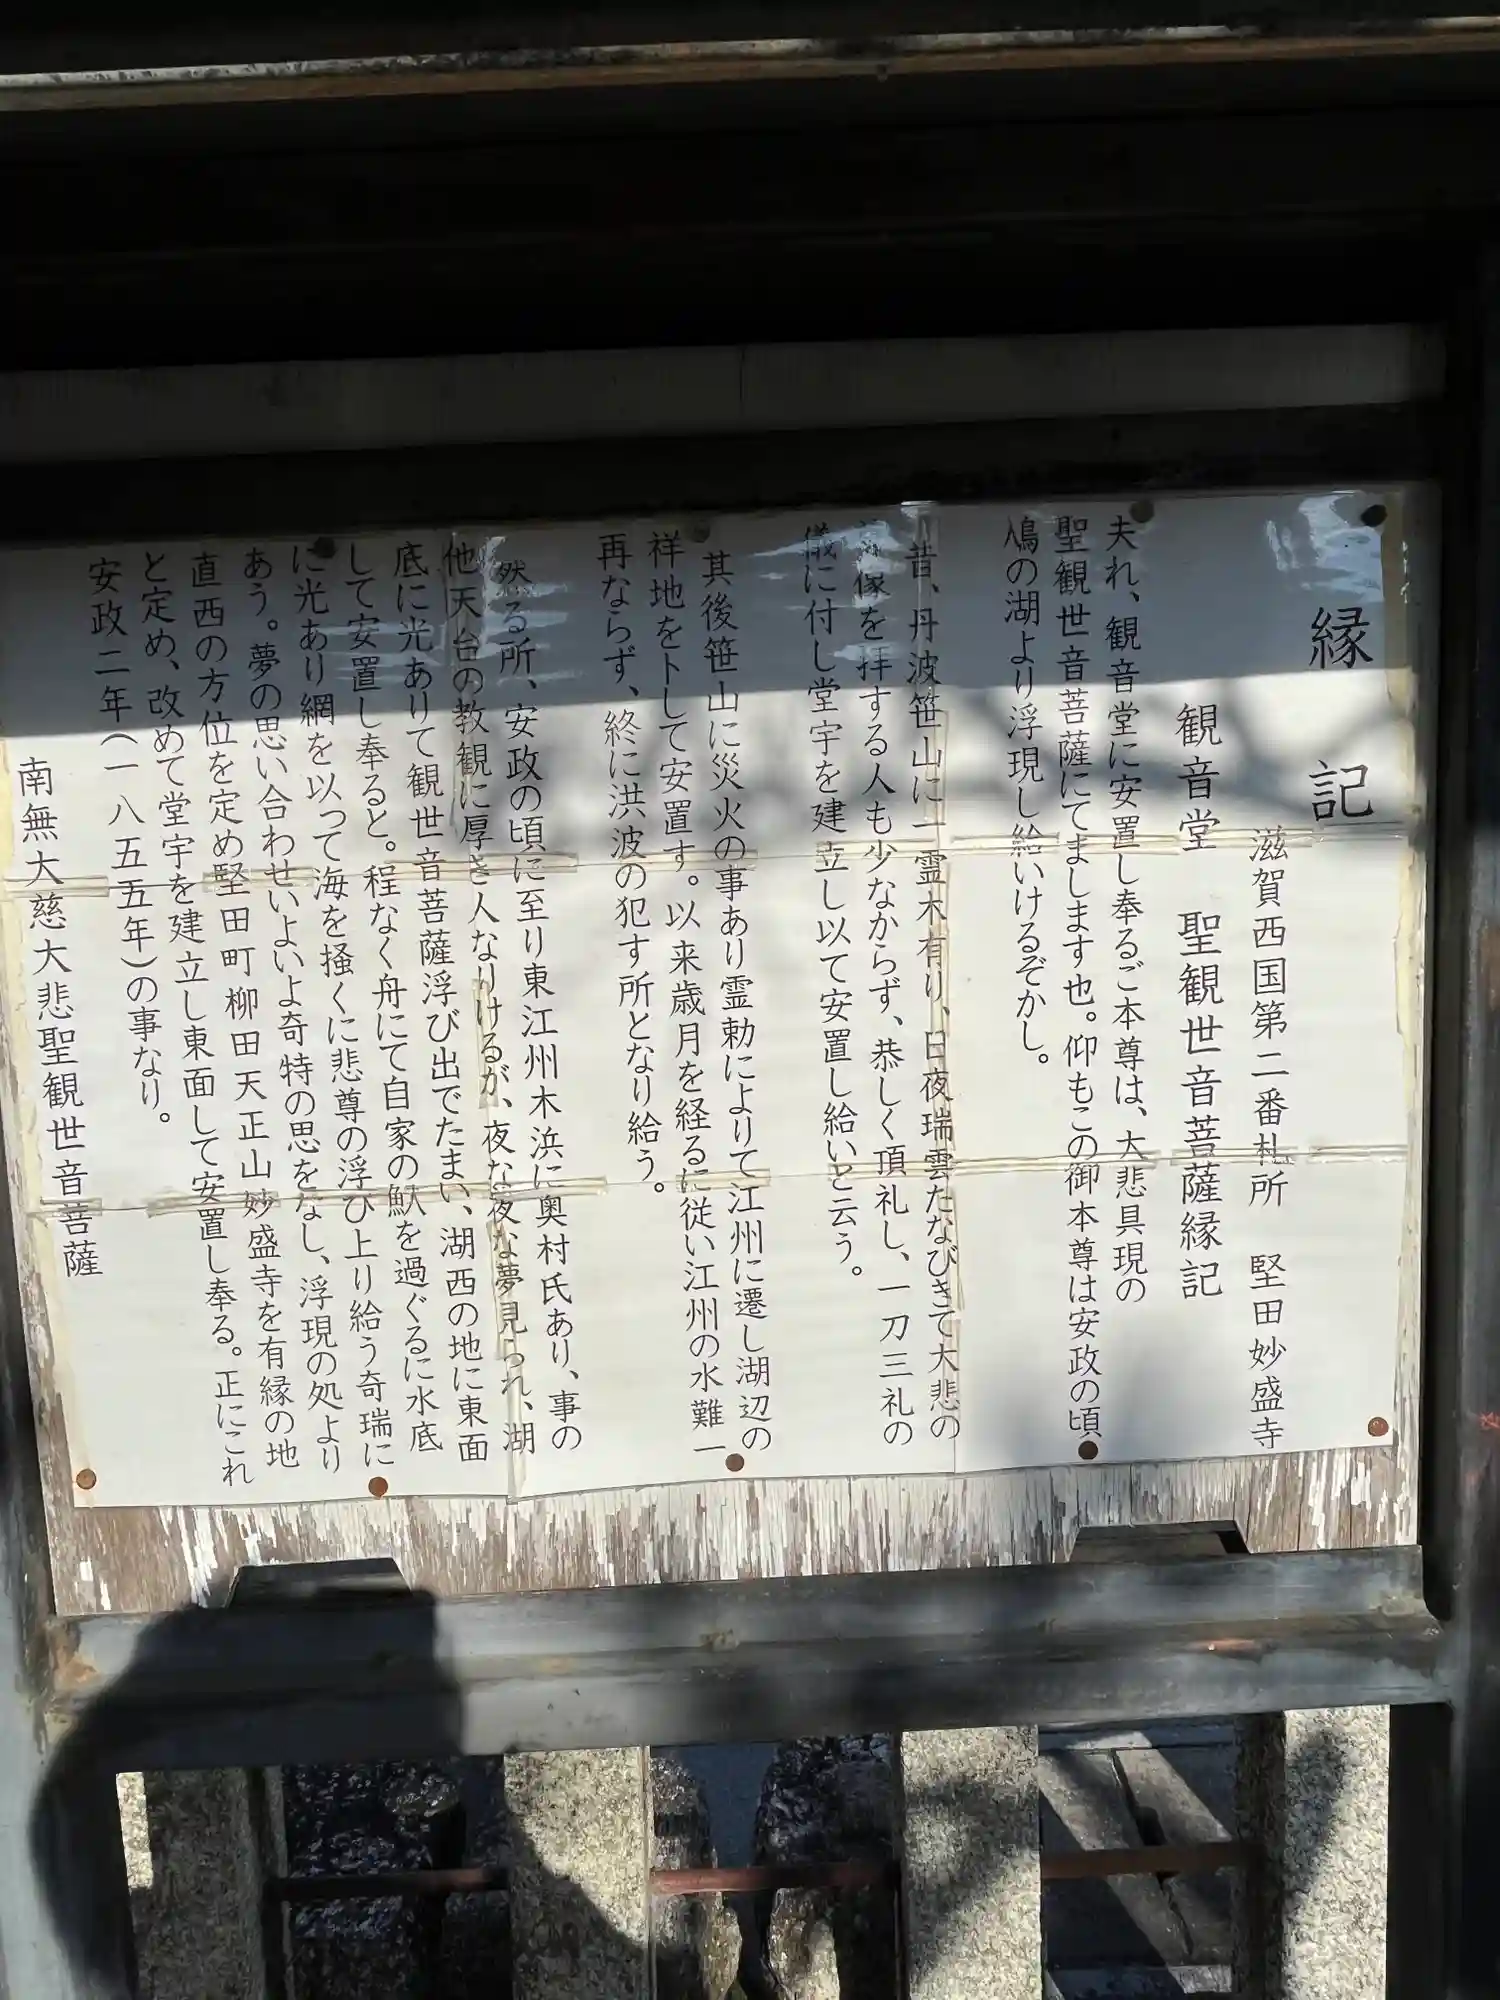 縁記
滋賀西国第二番札所 堅田妙盛寺
観音堂 聖観世音菩薩縁記
夫れ、観音堂に安置し奉るご本尊は、大悲具現の
聖観世音菩薩にてまします也。仰もこの御本尊は安政の頃
鳰の湖より浮現し給いけるぞかし。
昔、丹波笹山に一霊木有り、日夜瑞雲たなびきて大悲の
像を拝する人も少なからず、恭しく頂礼し、一刀三礼の
儀に付し堂宇を建立し以て安置し給いと云う。
其後笹山に災火の事あり霊勅によりて江州に遷し湖辺の
祥地を卜して安置す。以来歳月を経るに従い江州の水難一
再ならず、終に洪波の犯す所となり給う。
然る所、安政の頃に至り東江州木浜に奥村氏あり、事の
他天台の教観に厚き人なりけるが、夜な夜な夢見られ、湖
底に光ありて観世音菩薩浮び出でたまい、湖西の地に東面
して安置し奉ると。程なく舟にて自家の魞を過ぐるに水底
に光あり網を以って海を掻くに悲尊の浮び上り給う奇瑞に
あう。夢の思い合わせいよいよ奇特の思をなし、浮現の処より
直西の方位を定め堅田町柳田天正山妙盛寺を有縁の地
と定め、改めて堂宇を建立し東面して安置し奉る。正にこれ
安政二年（一八五五年）の事なり。
南無大慈大悲聖観世音菩薩